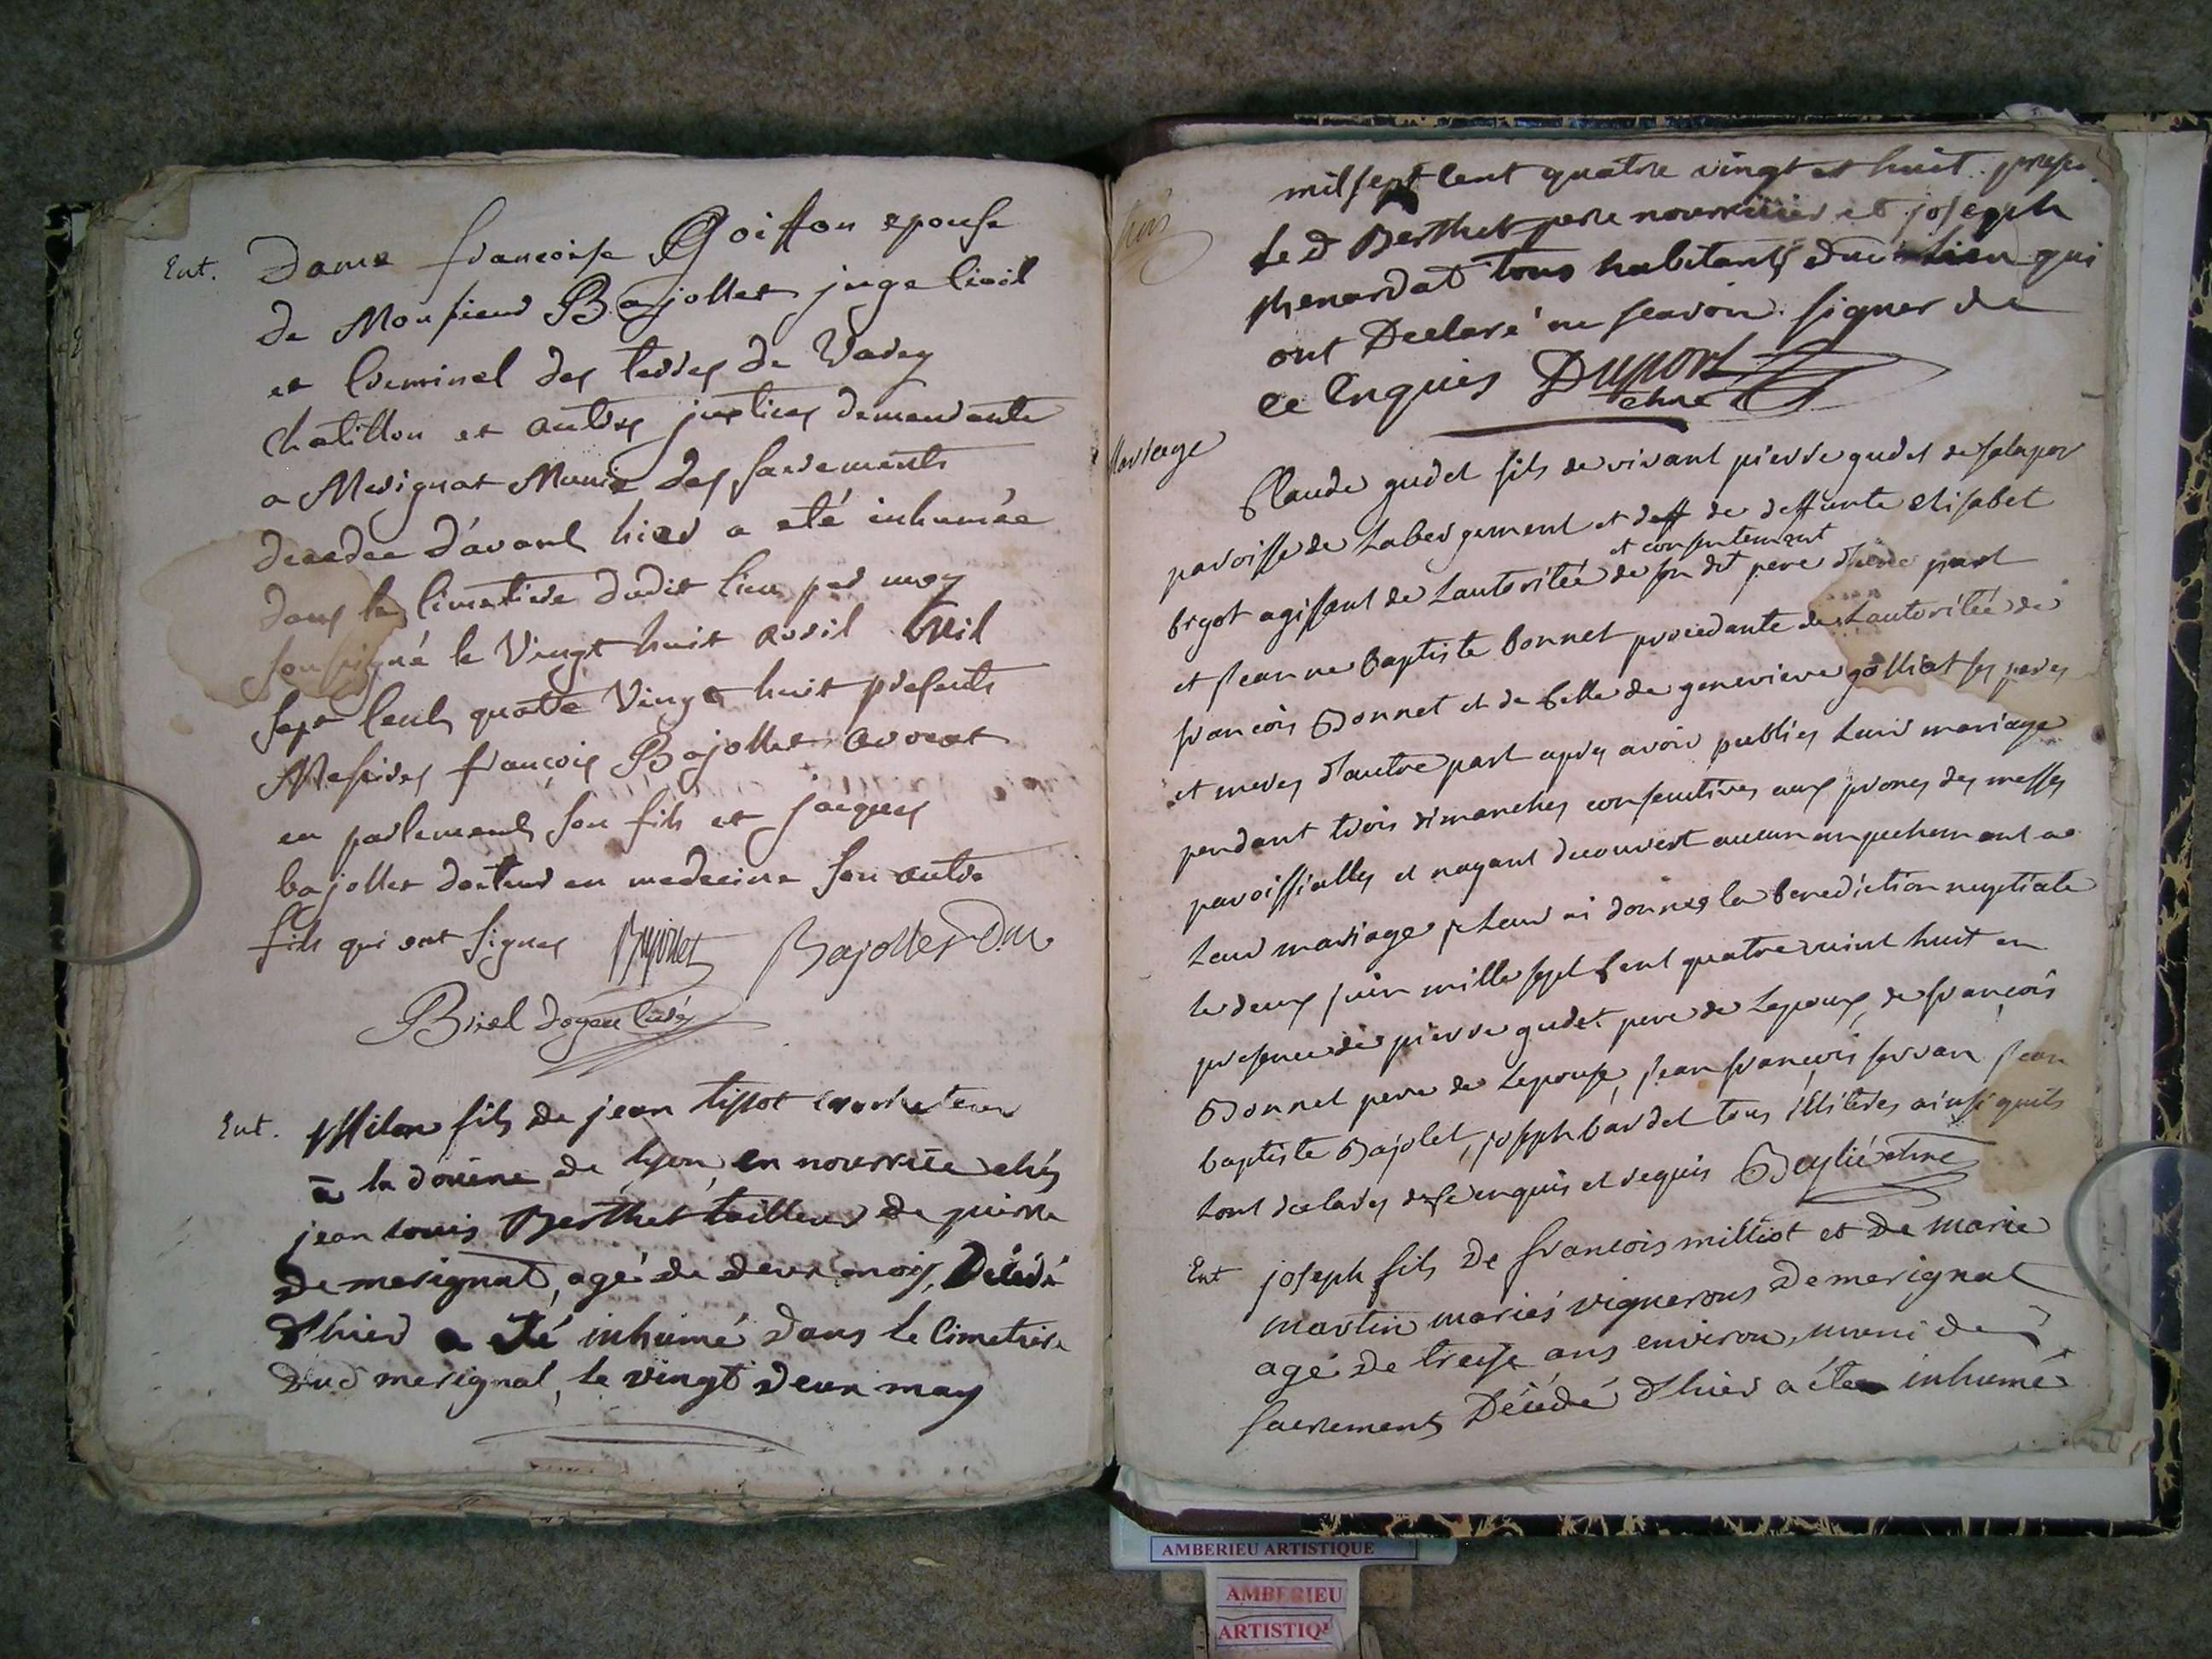 Ent. Dame francoise Goiffon epouse
de Monsieur Bajollet juge Civil
et Criminel des terres de Varey
Chatillon et autres justices demeurante
a Merignat Munie des sacrements
decedee d'avant hier a eté inhumée
dans le Cimetiere dudit lieu par moy
soussigné le Vingt huit avril Mil
sept Cents quatre Vingt huit presents
Messires françois Bajollet avocat
en parlement son fils et jacques
bajollet docteur en medecine son autre
fils qui ont signes Bajollet Bajollet D.m.
Biref doyen Curé
Ent. fils de jean tissot
a la doüene de lyon, en nourrice chés
jean Louis Berthet tailleur de pierre
de merignat, agé de deux mois, Décédé
d'hier a été inhumé dans le Cimetiere
dud merignat, le vingt deux may
mil sept Cent quatre vingt et huit.
Le d Berthet pere nourricier et joseph
phenardat tous habitants dud Lieu qui
ont Declaré ne scavoir signer de
ce Enquis Duport
Mariage
Claude gudet fils de vivant pierre gudet de
paroisse de Labergement et deff de deffunte elisabet
brgot agissant de Lautoritée et consentement de son dit pere d'une part
et jeanne baptiste bonnet procedante de Lautoritée de
françois Bonnet et de Celle de genevieve golliat ses peres
et meres d'autre part apres avoir publies Leur mariage
pendant trois dimanches consecutives aux prones des messes
paroissialles et nayant decouvert aucun anpechemant a
Leur mariage je Leur ai donnes la benediction nuptiale
le deux juin mille sept Cent quatre vint huit en
presence de pierre gudet pere de Lepoux, de françois
Bonnet pere de Lepouse, jean françois servan jean
baptiste Bajolet, joseph bardet tous illiteres ainsi quils
Lont declares de ce enquis et requis Beylié
Ent joseph fils De francois milliot et De marie
martin mariés vignerons De merignat
agé De treise ans environ, muni de
sacrements Décedé d'hier a été inhumé
AMBERIEU ARTISTIQUE
AMBERIEU
ARTISTIQ